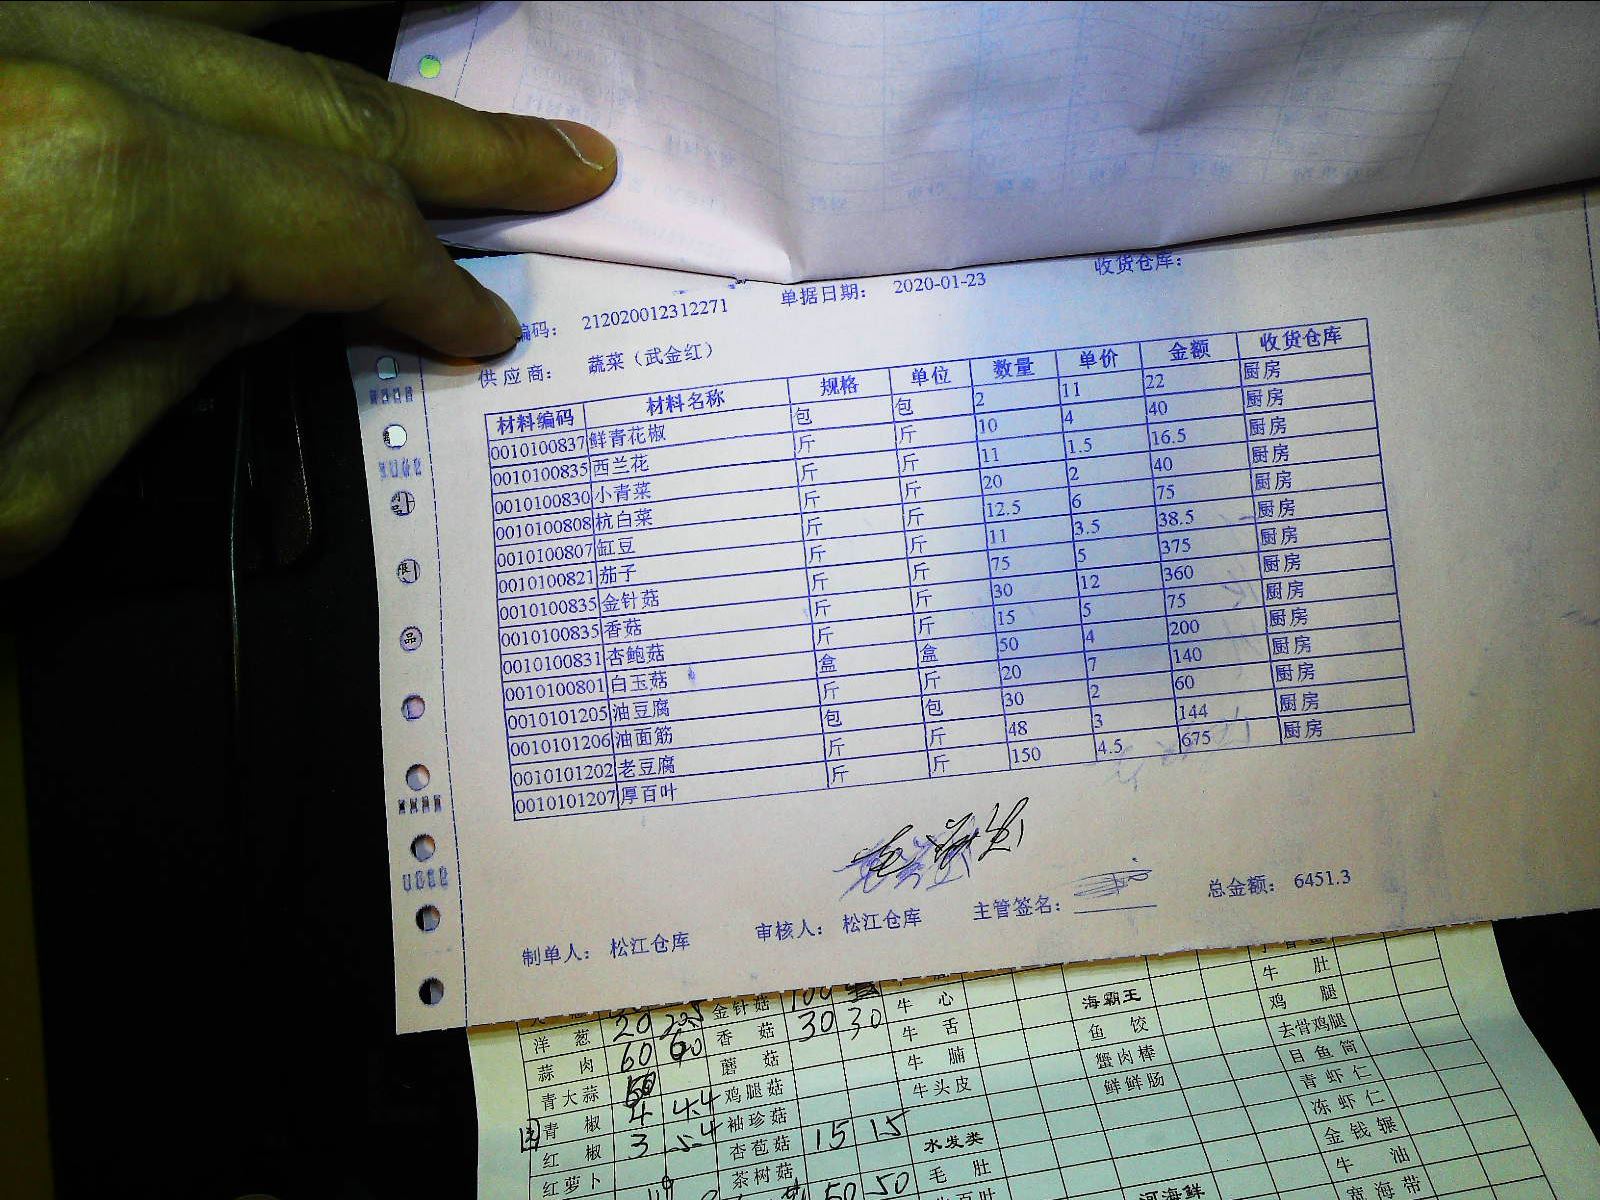 编码： 212020012312271 单据日期： 2020-01-23 收货仓库：
供应商： 蔬菜（武金红）
材料编码 材料名称 规格 单位 数量 单价 金额 收货仓库
0010100837 鲜青花椒 包 包 2 11 22 厨房
0010100835 西兰花 斤 斤 10 4 40 厨房
0010100830 小青菜 斤 斤 11 1.5 16.5 厨房
0010100808 杭白菜 斤 斤 20 2 40 厨房
0010100807 缸豆 斤 斤 12.5 6 75 厨房
0010100821 茄子 斤 斤 11 3.5 38.5 厨房
0010100835 金针菇 斤 斤 75 5 375 厨房
0010100835 香菇 斤 斤 30 12 360 厨房
0010100831 杏鲍菇 斤 斤 15 5 75 厨房
0010100801 白玉菇 盒 盒 50 4 200 厨房
0010101205 油豆腐 斤 斤 20 7 140 厨房
0010101206 油面筋 包 包 30 2 60 厨房
0010101202 老豆腐 斤 斤 48 3 144 厨房
0010101207 厚百叶 斤 斤 150 4.5 675 厨房
制单人： 松江仓库 审核人： 松江仓库 主管签名： 总金额： 6451.3
金针菇 100 牛心 海霸王 牛肚
洋葱 20 香菇 30 30 牛舌 鱼饺 鸡腿
蒜肉 60 60 蘑菇 牛腩 蟹肉棒 去骨鸡腿
青大蒜 鸡腿菇 牛头皮 鲜鲜肠 目鱼筒
青椒 4 4.4 袖珍菇 青虾仁
红椒 3 5.4 杏苞菇 15 15 水发类 冻虾仁
红萝卜 茶树菇 50 50 毛肚 河海鲜 金钱辗
牛油
宽海带